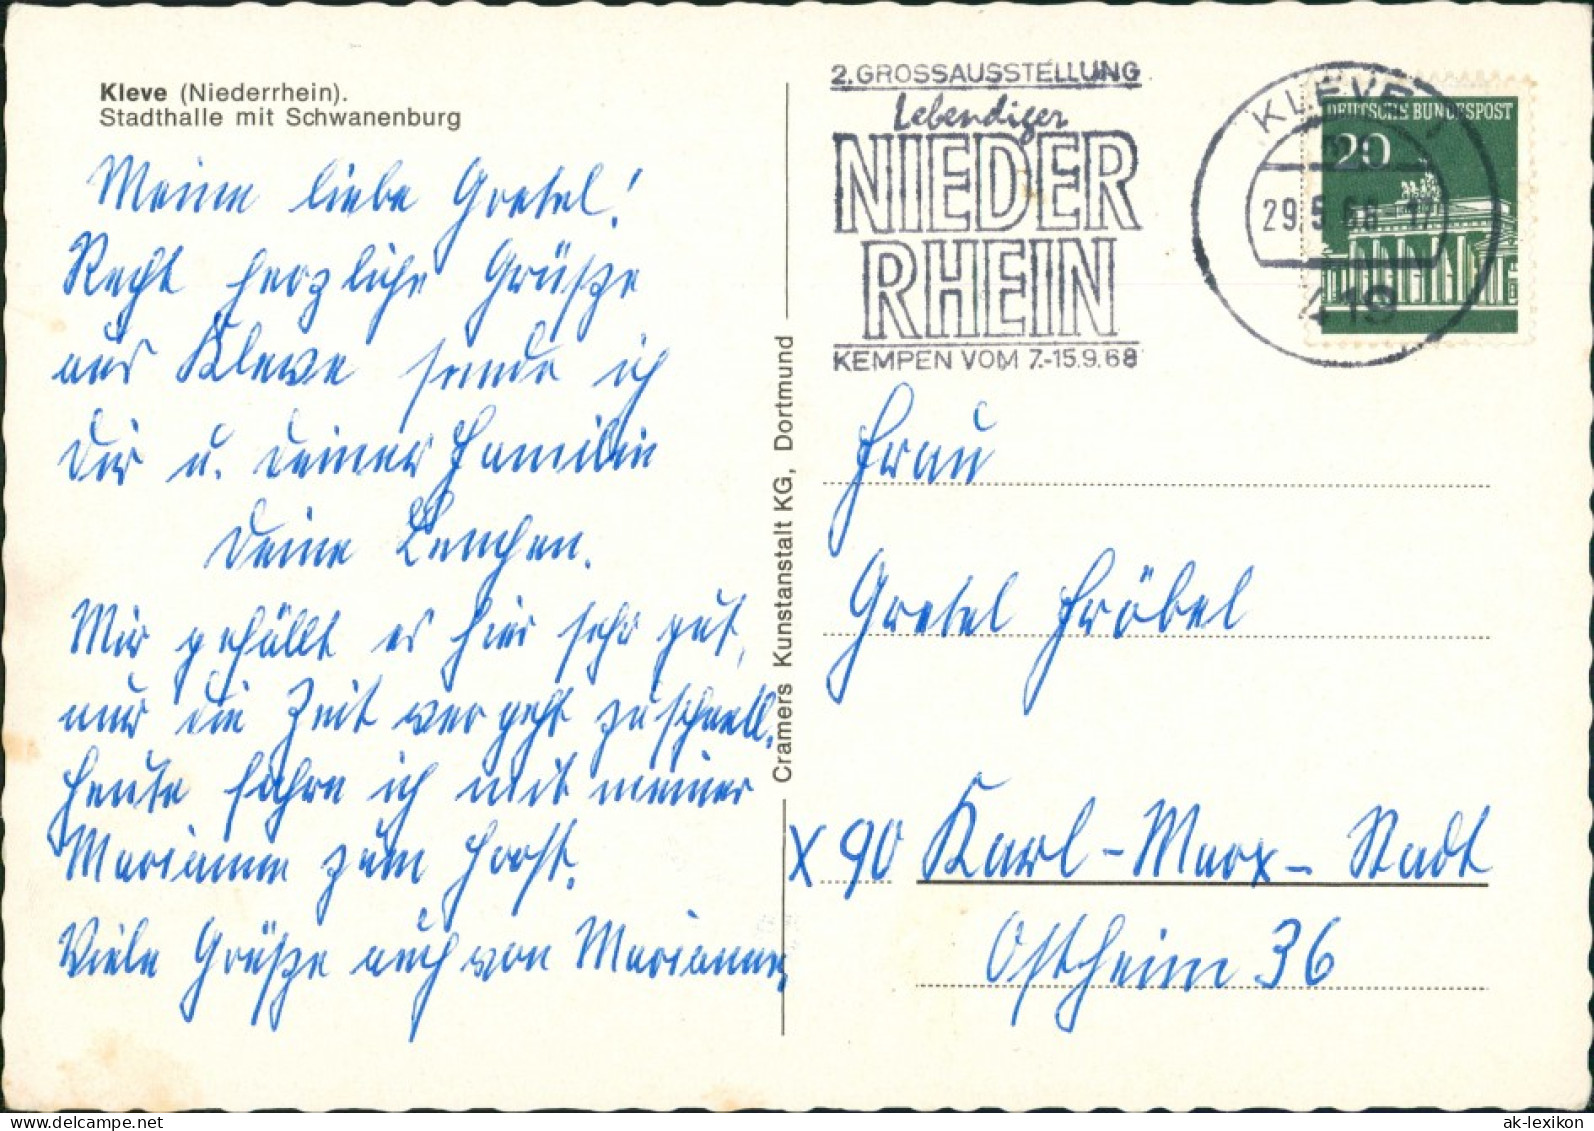 Kleve (Niederrhein).
Stadthalle mit Schwanenburg
Meine liebe Gretel!
Recht herzliche Grüße
aus Kleve sende ich
Dir u. Deiner Familie
Deine Lenchen.
Mir gefällt es hier sehr gut,
nur die Zeit vergeht zu schnell.
Heute fahre ich mit meiner
Marianne zum Horst.
Viele Grüße auch von Marianne
Cramers Kunstanstalt KG, Dortmund
2. GROSSAUSSTELLUNG
Lebendiger
NIEDER
RHEIN
KEMPEN VOM 7.-15.9.68
KLEVE 1
29.5.68-17
419
DEUTSCHE BUNDESPOST
20
Frau
Gretel Fröbel
X 90 Karl-Marx-Stadt
Ostheim 36
ak-lexikon